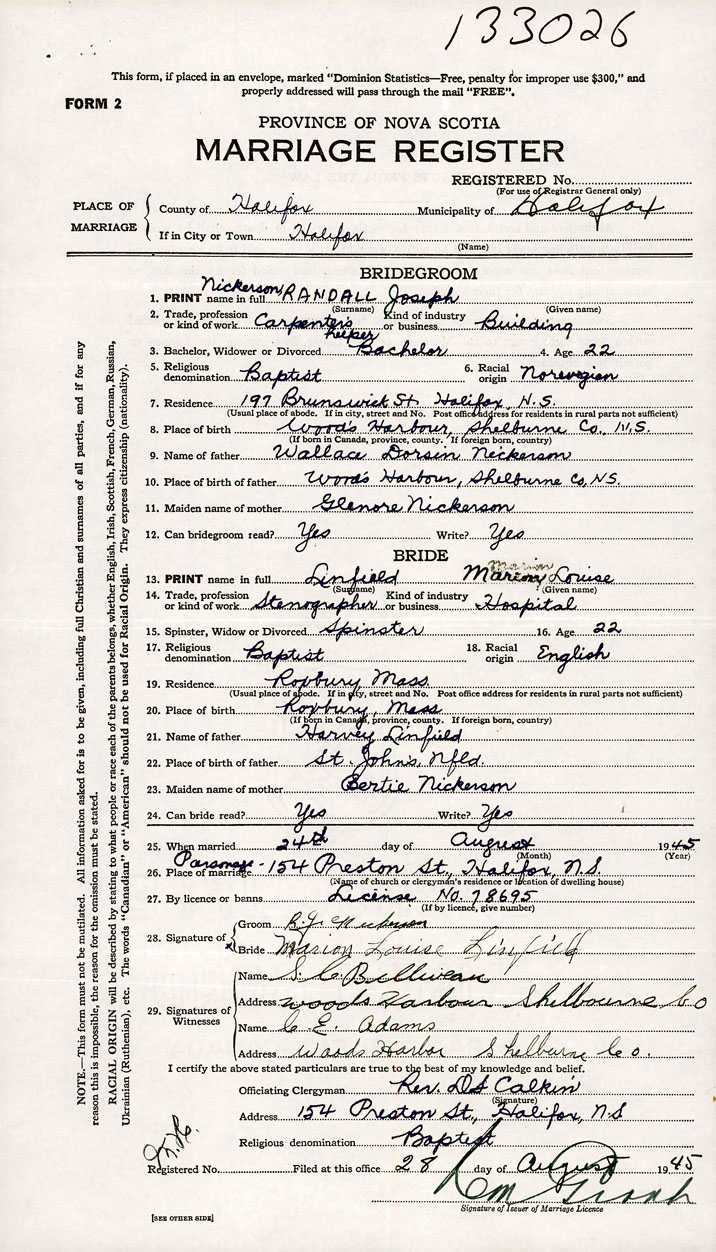 133026
This form, if placed in an envelope, marked "Dominion Statistics—Free, penalty for improper use $300," and
properly addressed will pass through the mail "FREE".
FORM 2
PROVINCE OF NOVA SCOTIA
MARRIAGE REGISTER
REGISTERED No.
(For use of Registrar General only)
PLACE OF MARRIAGE
County of Halifax Municipality of Halifax
If in City or Town Halifax
(Name)
BRIDEGROOM
1. PRINT name in full Nickerson, RANDALL Joseph
(Surname) (Given name)
2. Trade, profession or kind of work Carpenter's helper Kind of industry or business Building
3. Bachelor, Widower or Divorced Bachelor 4. Age 22
5. Religious denomination Baptist 6. Racial origin Norevegian
7. Residence 197 Brunswick St. Halifax, N.S.
(Usual place of abode. If in city, street and No. Post office address for residents in rural parts not sufficient)
8. Place of birth Wood's Harbour, Shelburne Co., N.S.
(If born in Canada, province, county. If foreign born, country)
9. Name of father Wallace Dorsin Nickerson
10. Place of birth of father Wood's Harbour, Shelburne Co, N.S.
11. Maiden name of mother Glenore Nickerson
12. Can bridegroom read? Yes Write? Yes
BRIDE
13. PRINT name in full Linfield Marion Marion Louise
(Surname) (Given name)
14. Trade, profession or kind of work Stenographer Kind of industry or business Hospital
15. Spinster, Widow or Divorced Spinster 16. Age 22
17. Religious denomination Baptist 18. Racial origin English
19. Residence Roxbury Mass.
(Usual place of abode. If in city, street and No. Post office address for residents in rural parts not sufficient)
20. Place of birth Roxbury, Mass
(If born in Canada, province, county. If foreign born, country)
21. Name of father Harvey Linfield
22. Place of birth of father St. John's, Nfld.
23. Maiden name of mother Bertie Nickerson
24. Can bride read? Yes Write? Yes
25. When married 24th day of August 1945
(Month) (Year)
26. Place of marriage Parsonage - 154 Preston St, Halifax, N.S.
(Name of church or clergyman's residence or location of dwelling house)
27. By licence or banns License No. 78695
(If by licence, give number)
28. Signature of
Groom R.J. Nickerson
x Bride Marion Louise Linfield
29. Signatures of Witnesses
Name S. C. Belliveau
Address woods Harbour Shelbourne Co
Name C. E. Adams
Address Woods Harbor Shelburne Co.
I certify the above stated particulars are true to the best of my knowledge and belief.
Officiating Clergyman Rev. D S Calkin
(Signature)
Address 154 Preston St, Halifax, N.S
Religious denomination Baptist
Registered No. Filed at this office 28 day of August 1945
Signature of Issuer of Marriage Licence
[SEE OTHER SIDE]
NOTE.—This form must not be mutilated. All information asked for is to be given, including full Christian and surnames of all parties, and if for any
reason this is impossible, the reason for the omission must be stated.
RACIAL ORIGIN will be described by stating to what people or race each of the parents belongs, whether English, Irish, Scottish, French, German, Russian,
Ukrainian (Ruthenian), etc. The words "Canadian" or "American" should not be used for Racial Origin. They express citizenship (nationality).